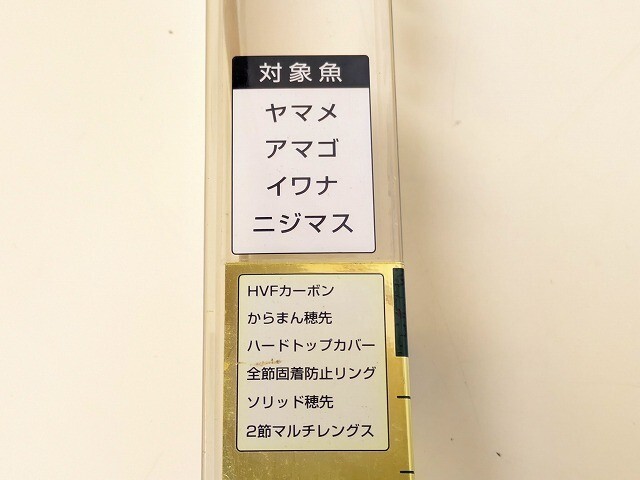 対象魚
ヤマメ
アマゴ
イワナ
ニジマス
HVFカーボン
からまん穂先
ハードトップカバー
全節固着防止リング
ソリッド穂先
2節マルチレングス